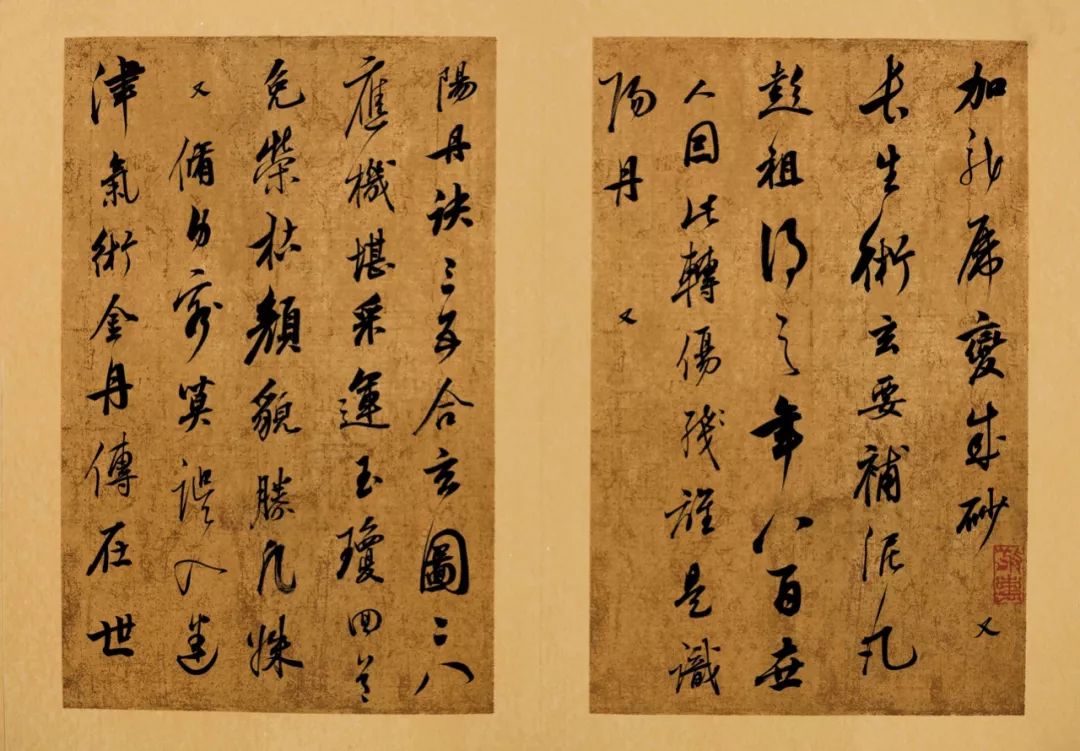 變成砂 又
長生術玄要補泥丸
彭祖得之年八百世
人因此轉傷殘誰是識
陽丹 又
陽丹訣三五合玄圖二八
應機堪采運玉瓊回首
免榮枯顏貌勝凡姝
又 脩身客莫誤入迷
津氣術金丹傳在世